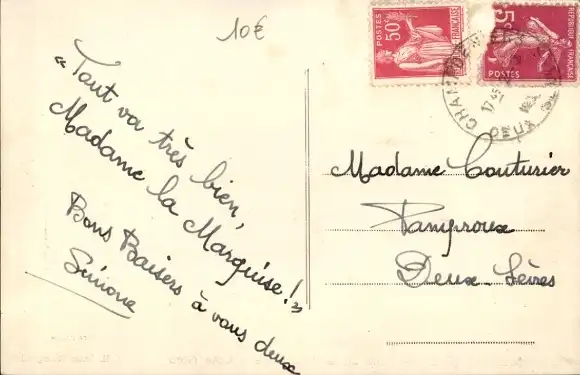 10€
50c
POSTES
REPUBLIQUE FRANÇAISE
5c
REPUBLIQUE FRANÇAISE
POSTES
17
« Tout va très bien,
Madame la Marquise! »
Bons Baisers à vous deux
Simone
Madame Couturier
Pamproux
Deux-Sèvres